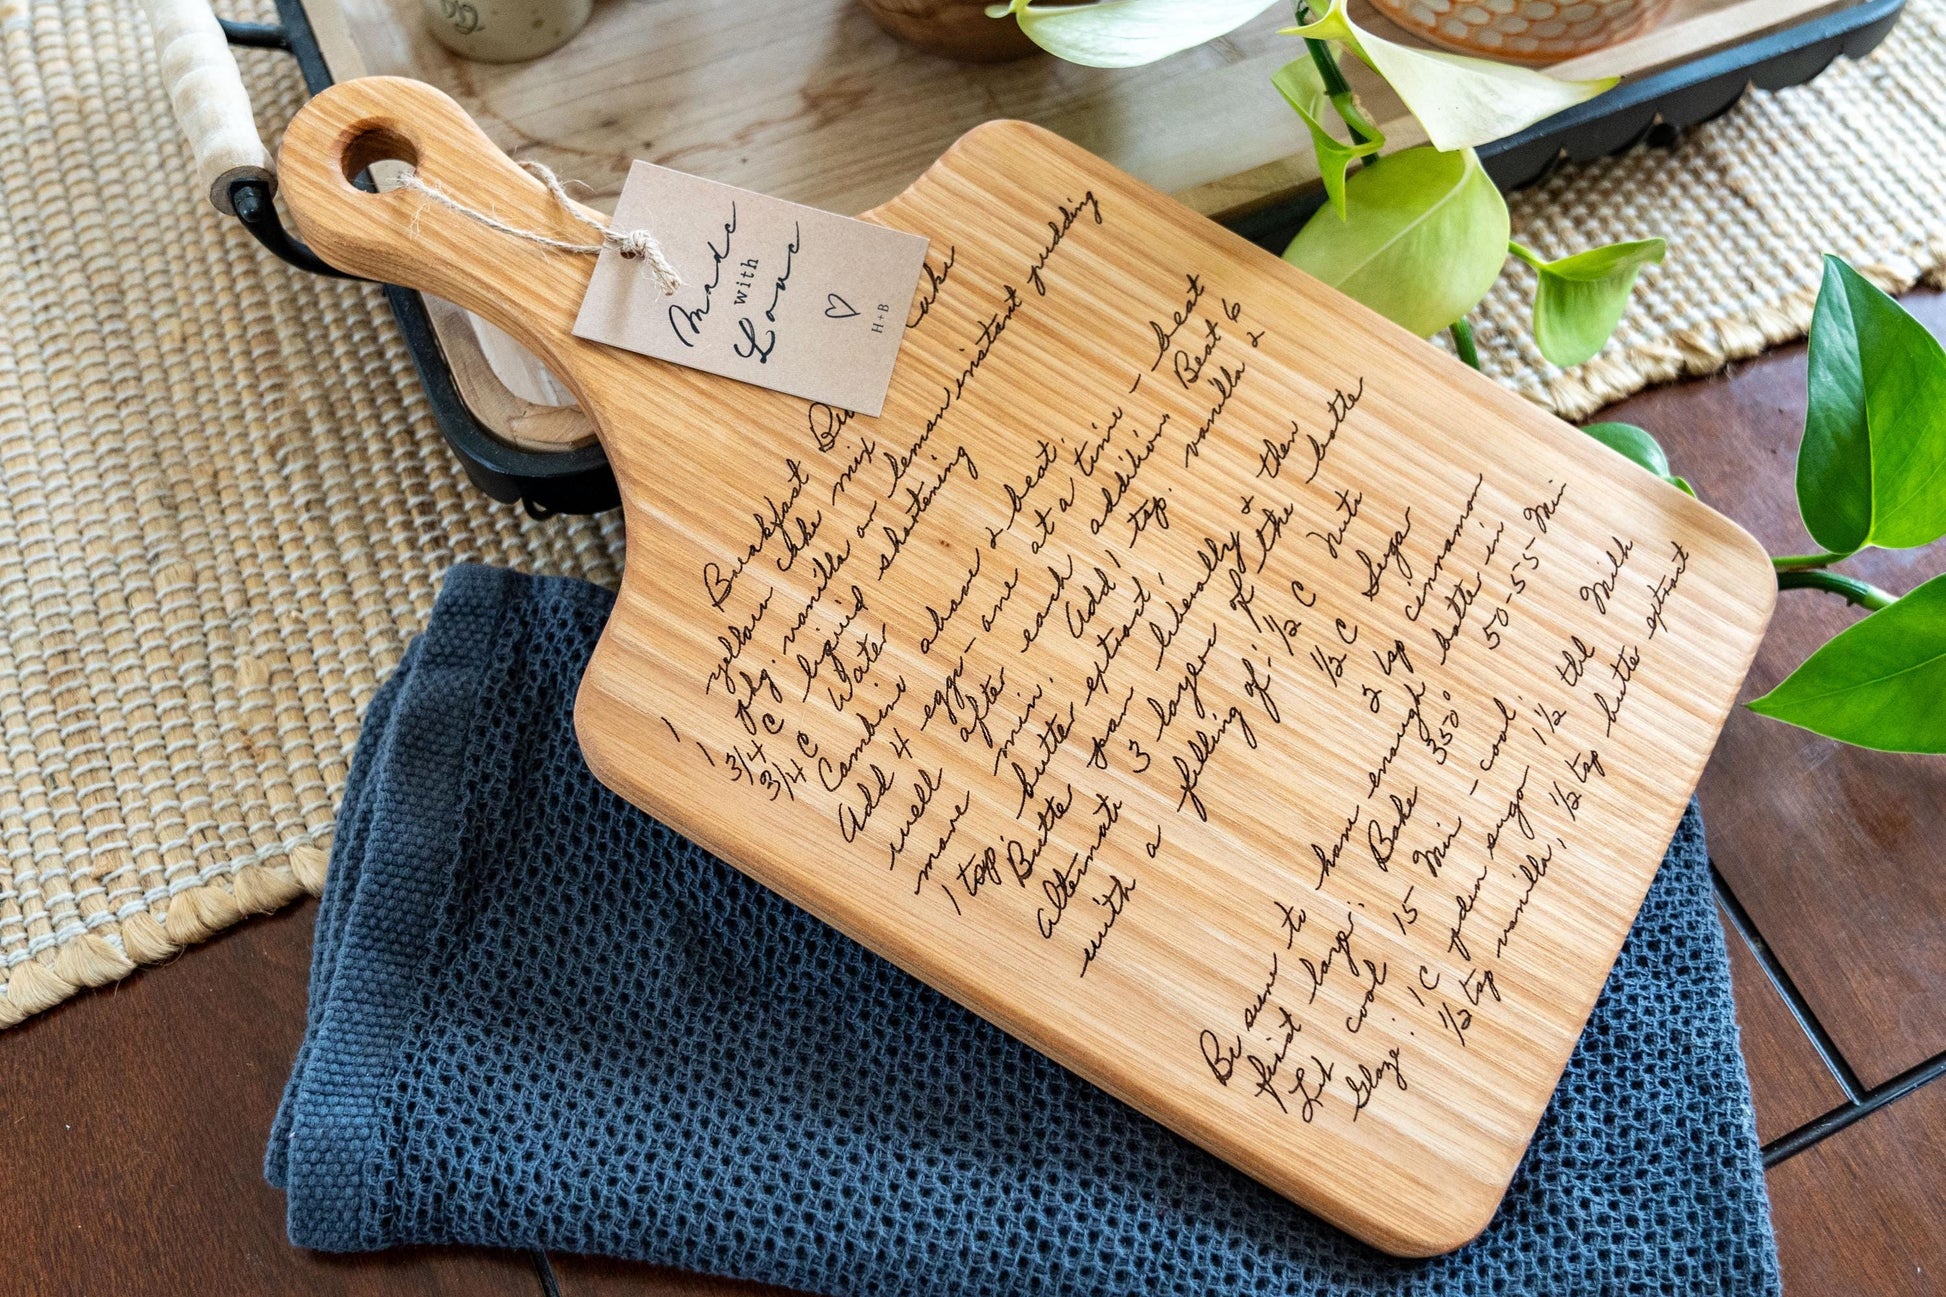 Made
with
Love
H+B
Breakfast Bu Cake
1 yellow cake mix
1 pkg. vanilla or lemon instant pudding
3/4 C liquid shortening
3/4 C Water
Combine above & beat.
Add 4 eggs - one at a time - beat
well after each addition. Beat 6
more min. Add 1 tsp. vanilla &
1 tsp. butter extract.
Butter pan liberally & then
alternate 3 layers of the batter
with a filling of: 1/2 C Nuts
1/2 C Sugar
2 tsp cinnamon
Be sure to have enough batter in
first layer. Bake 350° 50-55 Min
Let cool 15 Min - cool.
Glaze: 1C powder sugar 1 1/2 tbl Milk
1/2 tsp vanilla, 1/2 tsp butter extract